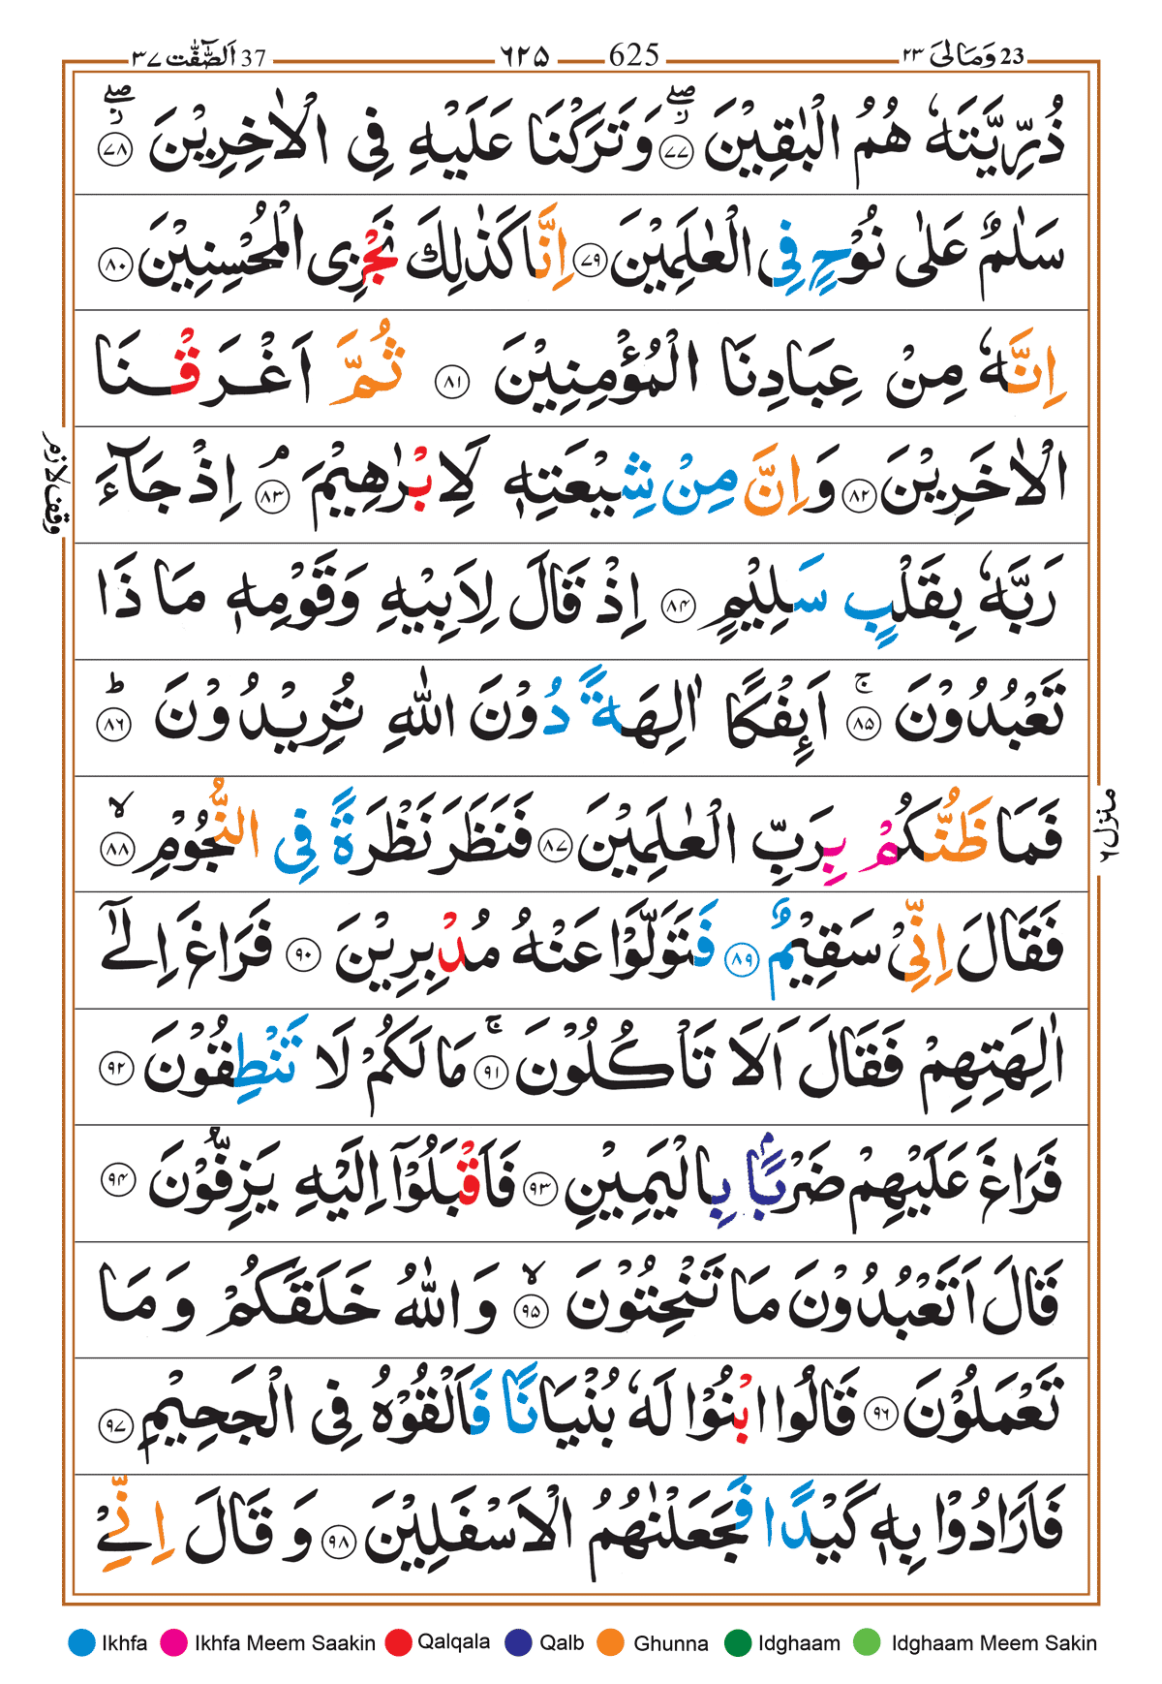 اَلصّٰٓفّٰت ٣٧ 37 ٦٢٥ 625 وَمَالِیَ ٢٣ 23
ذُرِّيَّتَهٗ هُمُ الْبٰقِيْنَ ۖ۝٧٧ وَتَرَكْنَا عَلَيْهِ فِى الْاٰخِرِيْنَ ۖ۝٧٨
سَلٰمٌ عَلٰى نُوْحٍ فِى الْعٰلَمِيْنَ ۝٧٩ اِنَّا كَذٰلِكَ نَجْزِى الْمُحْسِنِيْنَ ۝٨٠
اِنَّهٗ مِنْ عِبَادِنَا الْمُؤْمِنِيْنَ ۝٨١ ثُمَّ اَغْرَقْنَا
الْاٰخَرِيْنَ ۝٨٢ وَاِنَّ مِنْ شِيْعَتِهٖ لَاِبْرٰهِيْمَ ۘ۝٨٣ اِذْ جَآءَ
وقف لازم
رَبَّهٗ بِقَلْبٍ سَلِيْمٍ ۝٨٤ اِذْ قَالَ لِاَبِيْهِ وَقَوْمِهٖ مَاذَا
تَعْبُدُوْنَ ۚ۝٨٥ اَئِفْكًا اٰلِهَةً دُوْنَ اللّٰهِ تُرِيْدُوْنَ ؕ۝٨٦
فَمَا ظَنُّكُمْ بِرَبِّ الْعٰلَمِيْنَ ۝٨٧ فَنَظَرَ نَظْرَةً فِى النُّجُوْمِ ۙ۝٨٨
منزل ٦
فَقَالَ اِنِّىْ سَقِيْمٌ ۝٨٩ فَتَوَلَّوْا عَنْهُ مُدْبِرِيْنَ ۝٩٠ فَرَاغَ اِلٰٓى
اٰلِهَتِهِمْ فَقَالَ اَلَا تَاْكُلُوْنَ ۚ۝٩١ مَا لَكُمْ لَا تَنْطِقُوْنَ ۝٩٢
فَرَاغَ عَلَيْهِمْ ضَرْبًۢا بِالْيَمِيْنِ ۝٩٣ فَاَقْبَلُوْٓا اِلَيْهِ يَزِفُّوْنَ ۝٩٤
قَالَ اَتَعْبُدُوْنَ مَا تَنْحِتُوْنَ ۙ۝٩٥ وَاللّٰهُ خَلَقَكُمْ وَمَا
تَعْمَلُوْنَ ۝٩٦ قَالُوا ابْنُوْا لَهٗ بُنْيَانًا فَاَلْقُوْهُ فِى الْجَحِيْمِ ۝٩٧
فَاَرَادُوْا بِهٖ كَيْدًا فَجَعَلْنٰهُمُ الْاَسْفَلِيْنَ ۝٩٨ وَقَالَ اِنِّىْ
Ikhfa Ikhfa Meem Saakin Qalqala Qalb Ghunna Idghaam Idghaam Meem Sakin